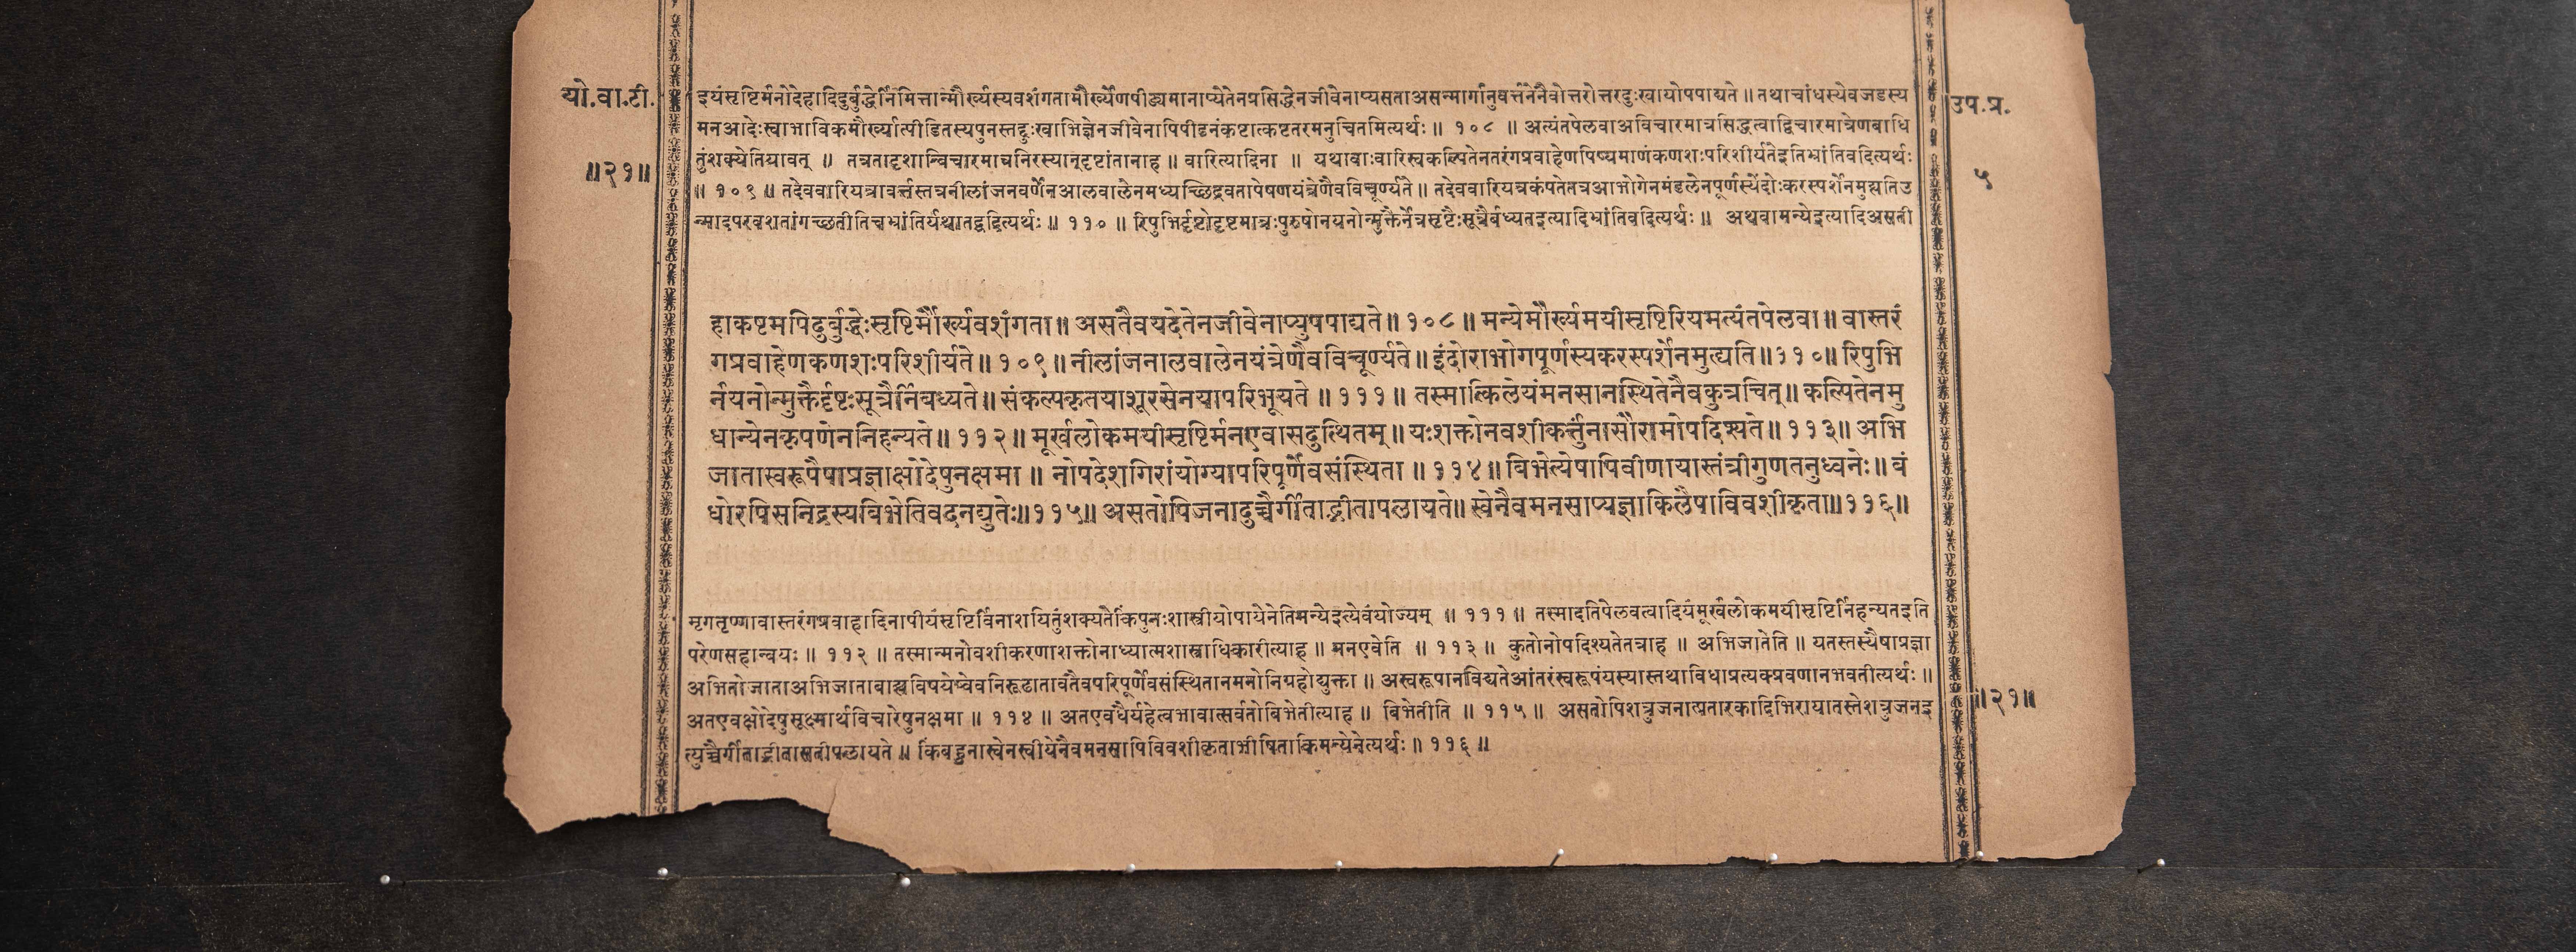 यो.वा.टी.
॥२१॥
इयंसृष्टिर्मनोदेहादिदुर्बुद्धेर्निमित्तान्मौर्ख्यस्यवशंगतामौर्ख्येणपीड्यमानाप्येतेनप्रसिद्धेनजीवेनाप्यसताअसन्मार्गानुवर्त्तनेनैवोत्तरोत्तरदुःखायोपपाद्यते ॥ तथाचांधस्येवजडस्य
मनआदेःस्वाभाविकमौर्ख्यात्पीडितस्यपुनस्तद्दुःखाभिज्ञेनजीवेनापिपीडनंकष्टात्कष्टतरमनुचितमित्यर्थः ॥ १०८ ॥ अत्यंतपेलवाअविचारमात्रसिद्धत्वाद्विचारमात्रेणबाधि
तुंशक्येतियावत् ॥ तत्रतादृशान्विचारमात्रनिरस्यान्दृष्टांतानाह ॥ वारित्यादिना ॥ यथावाःवारिस्वकल्पितेनतरंगप्रवाहेणपिष्यमाणंकणशःपरिशीर्यतेइतिभ्रांतिवदित्यर्थः
॥ १०९ ॥ तदेववारियत्रावर्त्तस्तत्रनीलांजनवर्णेनआलवालेनमध्यच्छिद्रवतापेषणयंत्रेणैवविचूर्ण्यते ॥ तदेववारियत्रकंपतेतत्रआभोगेनमंडलेनपूर्णस्येंदोःकरस्पर्शेनमुह्यतिउ
न्मादपरवशतांगच्छतीतिचभ्रांतिर्यथातद्वदित्यर्थः ॥ ११० ॥ रिपुभिर्दृष्टोदृष्टमात्रःपुरुषोनयनोन्मुक्तैर्नेत्रसृष्टैःसूत्रैर्बध्यतइत्यादिभ्रांतिवदित्यर्थः ॥ अथवामन्येइत्यादिअसती
उप.प्र.
५
हाकष्टमपिदुर्बुद्धेःसृष्टिर्मौर्ख्यवशंगता ॥ असतैवयदेतेनजीवेनाप्युपपाद्यते ॥ १०८ ॥ मन्येमौर्ख्यमयीसृष्टिरियमत्यंतपेलवा ॥ वास्तरं
गप्रवाहेणकणशःपरिशीर्यते ॥ १०९ ॥ नीलांजनालवालेनयंत्रेणैवविचूर्ण्यते ॥ इंदोराभोगपूर्णस्यकरस्पर्शेनमुह्यति ॥ ११० ॥ रिपुभि
र्नयनोन्मुक्तैर्दृष्टःसूत्रैर्निबध्यते ॥ संकल्पकृतयाशूरसेनयापरिभूयते ॥ १११ ॥ तस्मात्किलेयंमनसानस्थितेनैवकुत्रचित् ॥ कल्पितेनमु
धान्येनकृपणेननिहन्यते ॥ ११२ ॥ मूर्खलोकमयीसृष्टिर्मनएवासदुत्थितम् ॥ यःशक्तोनवशीकर्त्तुंनासौरामोपदिश्यते ॥ ११३ ॥ अभि
जातास्वरूपैषाप्रज्ञाक्षोदेषुनक्षमा ॥ नोपदेशगिरांयोग्यापरिपूर्णेवसंस्थिता ॥ ११४ ॥ बिभेत्येषापिवीणायास्तंत्रीगुणतनुध्वनेः ॥ बं
धोरपिसनिद्रस्यबिभेतिवदनद्युतेः ॥ ११५ ॥ असतोपिजनादुच्चैर्गीताद्भीतापलायते ॥ स्वेनैवमनसाप्यज्ञाकिलैषाविवशीकृता ॥ ११६ ॥
मृगतृष्णावास्तरंगप्रवाहादिनापीयंसृष्टिर्विनाशयितुंशक्यतेकिंपुनःशास्त्रीयोपायेनेतिमन्येइत्येवंयोज्यम् ॥ १११ ॥ तस्मादतिपेलवत्वादियंमूर्खलोकमयीसृष्टिर्निहन्यतइति
परेणसहान्वयः ॥ ११२ ॥ तस्मान्मनोवशीकरणाशक्तोनाध्यात्मशास्त्राधिकारीत्याह ॥ मनएवेति ॥ ११३ ॥ कुतोनोपदिश्यतेतत्राह ॥ अभिजातेति ॥ यतस्तस्यैषाप्रज्ञा
अभितोजाताअभिजाताबाह्यविषयेष्वेवनिरूढातावतैवपरिपूर्णेवसंस्थितानमनोनिग्रहोद्युक्ता ॥ अस्वरूपानविद्यतेआंतरंस्वरूपंयस्यास्तथाविधाप्रत्यक्प्रवणानभवतीत्यर्थः ॥
अतएवक्षोदेषुसूक्ष्मार्थविचारेषुनक्षमा ॥ ११४ ॥ अतएवधैर्यहेत्वभावात्सर्वतोबिभेतीत्याह ॥ बिभेतीति ॥ ११५ ॥ असतोपिशत्रुजनात्प्रतारकादिभिरायातस्तेशत्रुजनइ
त्युच्चैर्गीताद्भीतासतीपलायते ॥ किंबहुनास्वेनस्वीयेनैवमनसापिविवशीकृताभीषिताकिमन्येनेत्यर्थः ॥ ११६ ॥
॥२१॥